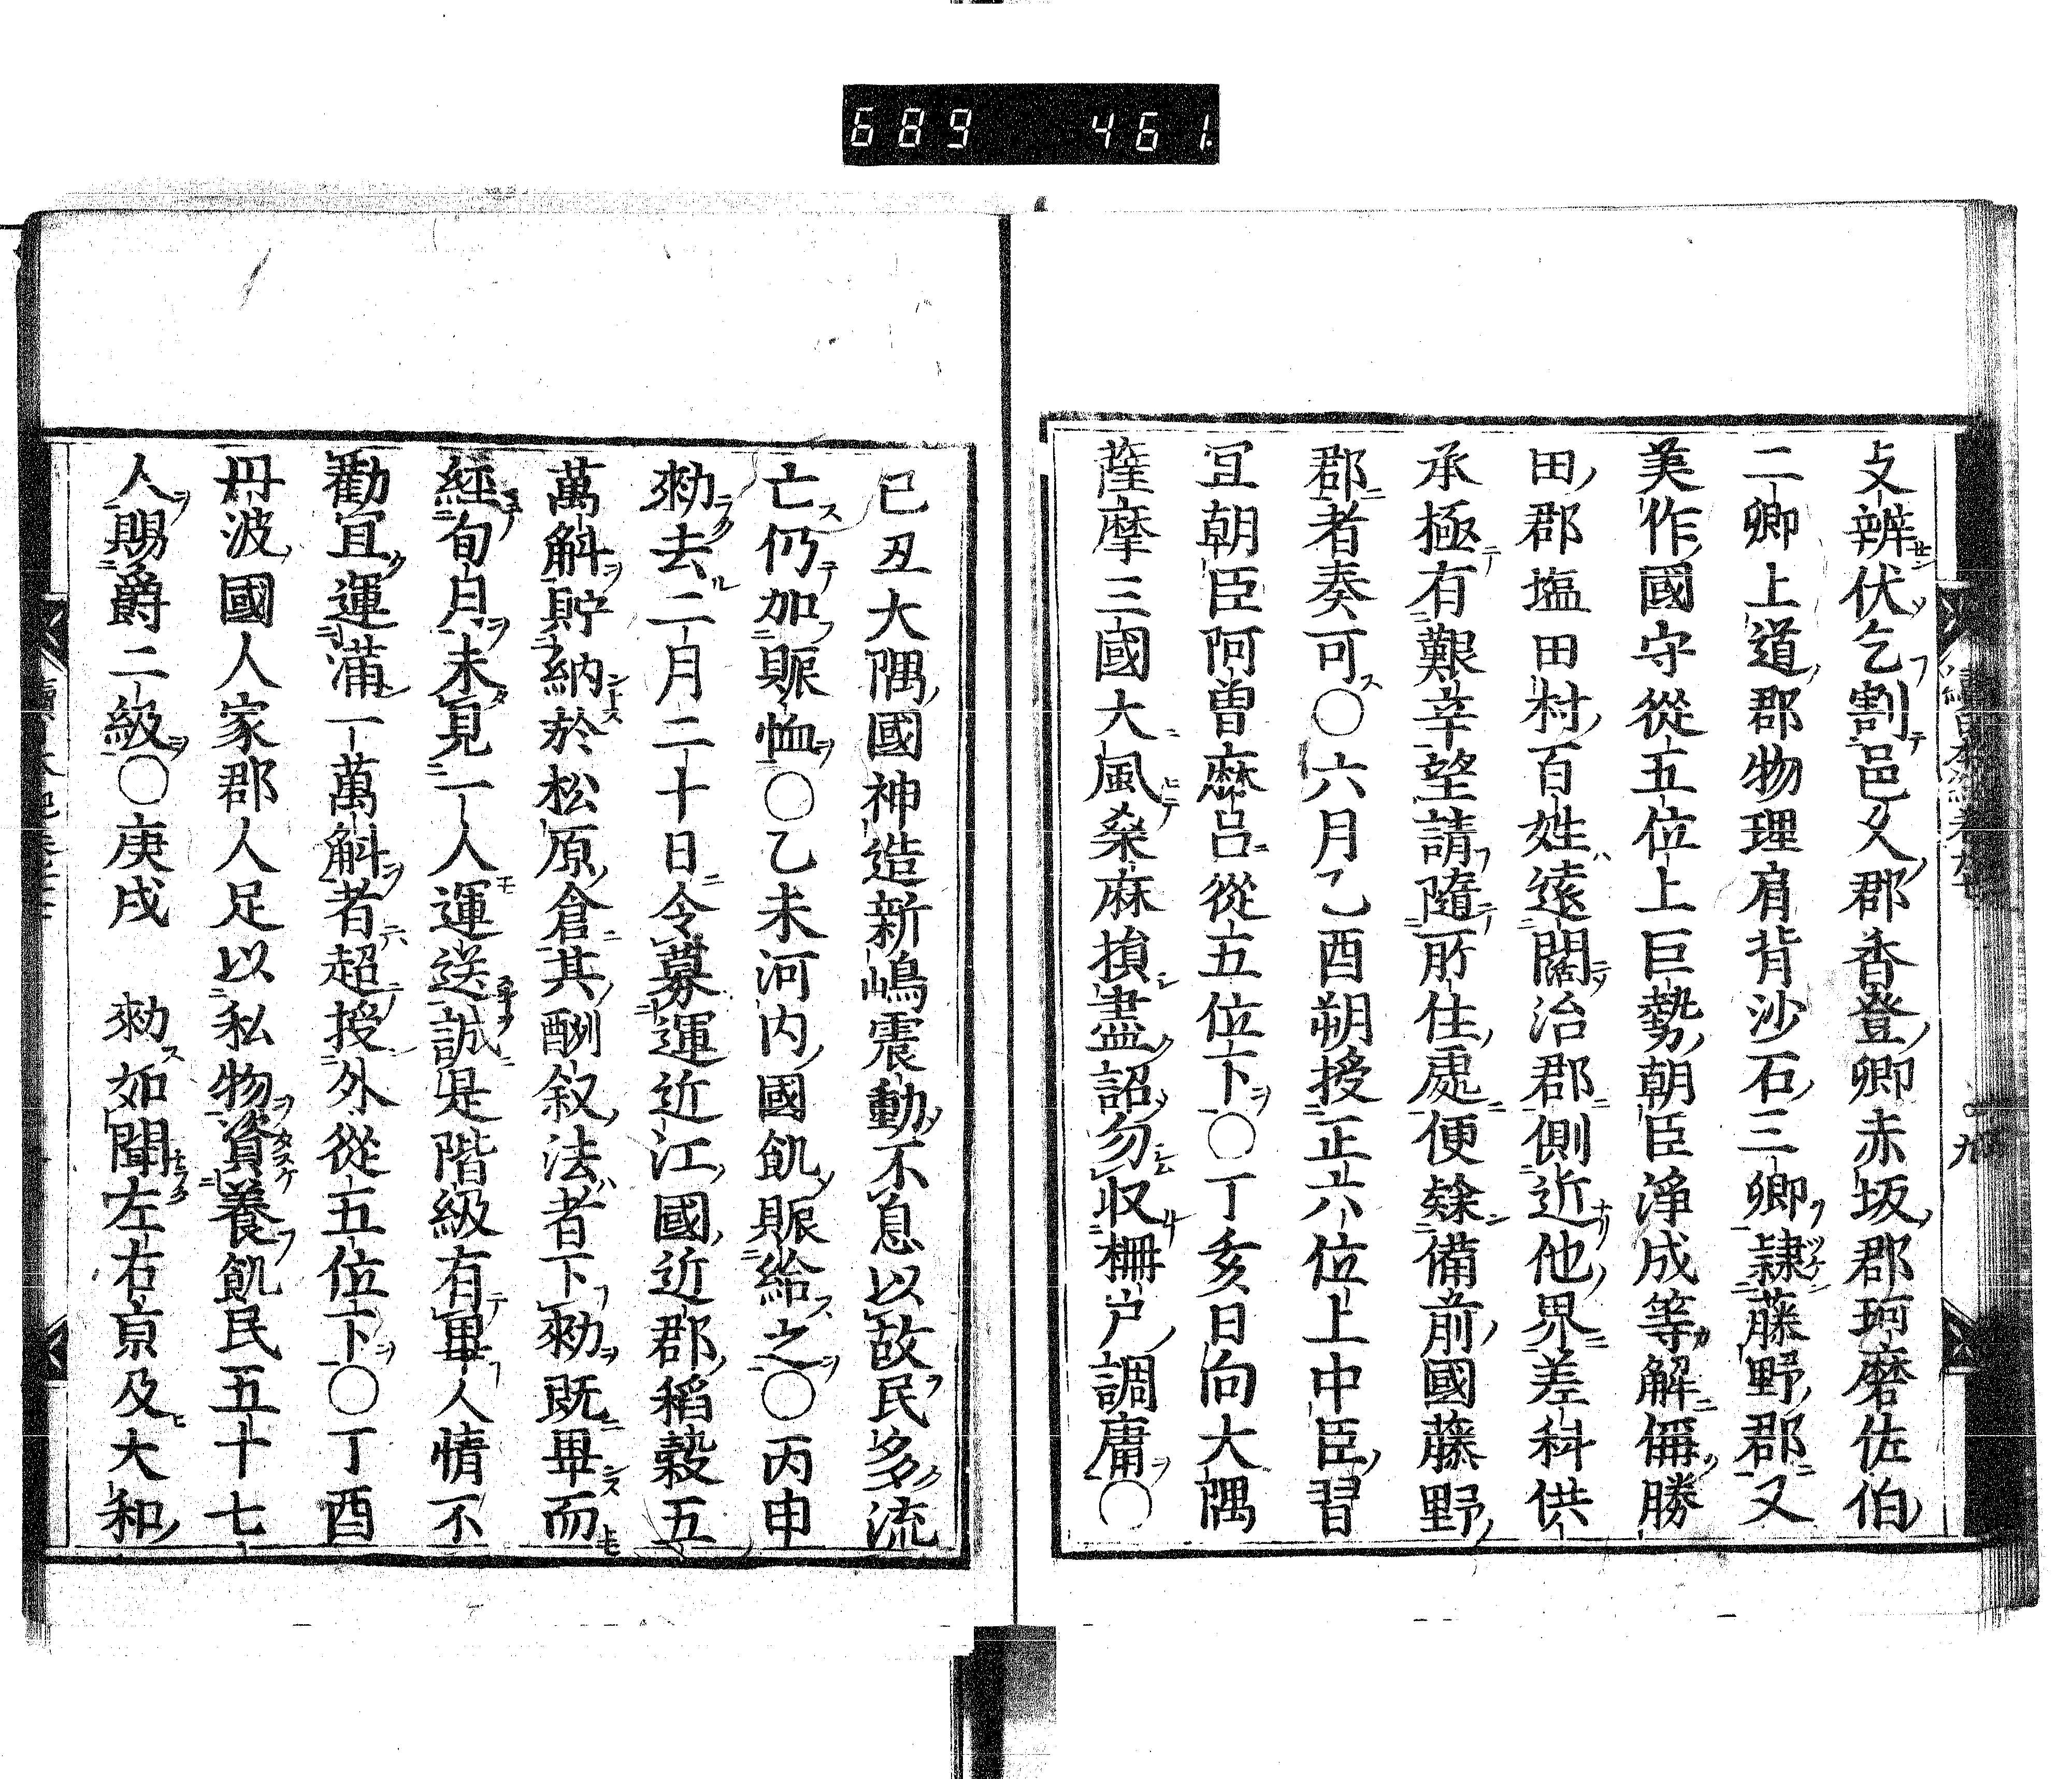 689 461
攴辨伏乞割邑又郡香登卿赤坂郡珂磨佐伯
二卿上道郡物理肩背沙石三卿隷藤野郡又
美作國守從五位上巨勢朝臣淨成等解偁勝
田郡塩田村百姓遠闊治郡側近他界差科供
承極有艱辛望請隨所住處便隷備前國藤野
郡者奏可〇六月乙酉朔授正六位上中臣習
冝朝臣阿曽麻呂從五位下〇丁亥日向大隅
薩摩三國大風桒麻損盡詔勿収柵户調庸〇
已丑大隅國神造新嶋震動不息以故民多流
亡仍加賑恤〇乙未河内國飢賑給之〇丙申
勑去二月二十日令募運近江國近郡稻穀五
萬斛貯納於松原倉其酬叙法者下勑既畢而
經旬月未見一人運送誠是階級有卑人情不
勸冝運滿一萬斛者超授外從五位下〇丁酉
丹波國人家郡人足以私物資養飢民五十七
人賜爵二級〇庚戌 勑如聞左右亰及大和